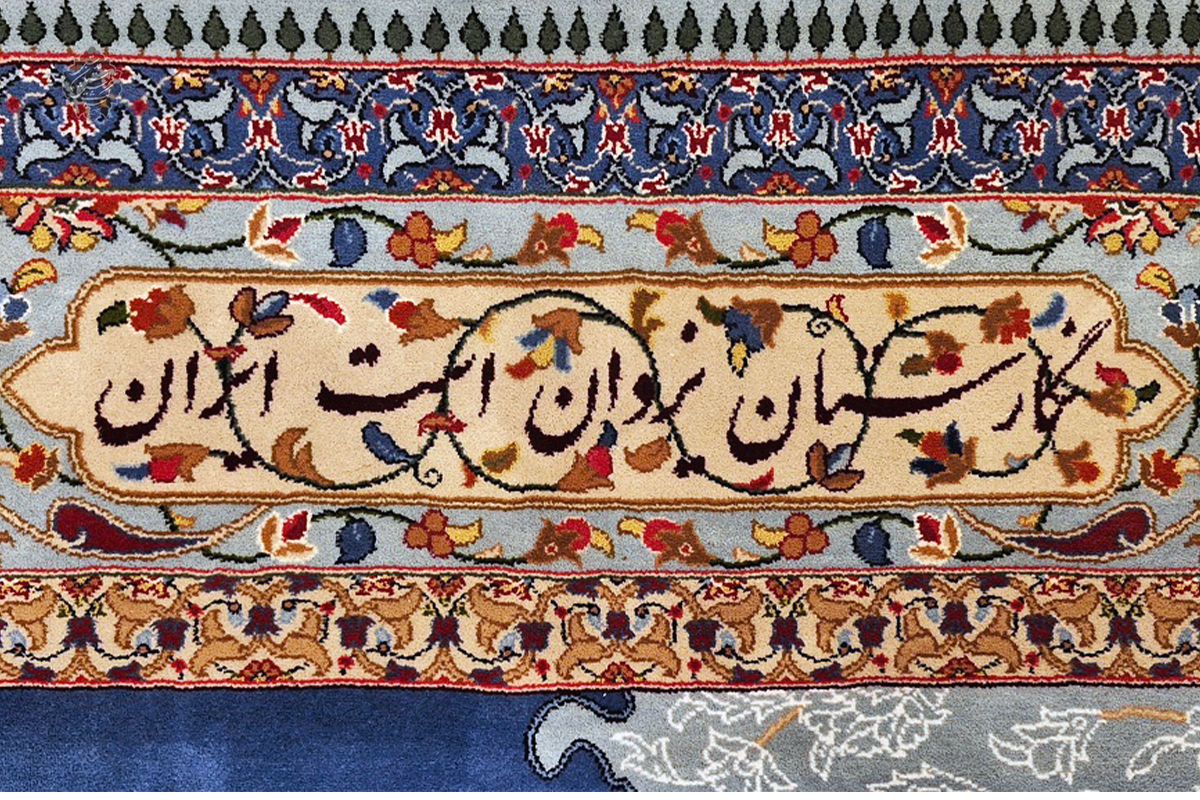 نگارستان یزدان است ایران